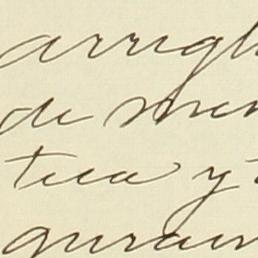 arregl
de men
tica y t
guran